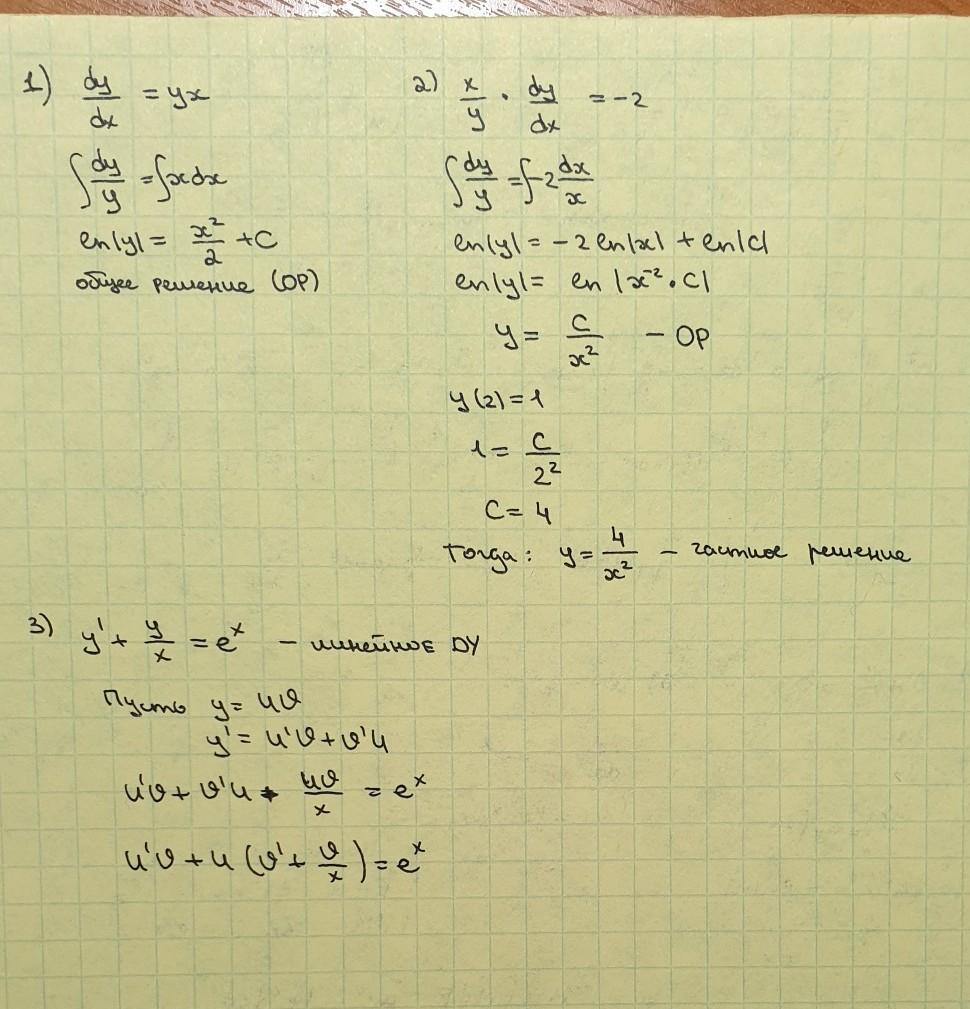 1) dy/dx = yx
∫ dy/y = ∫ x dx
ln|y| = x²/2 + C
общее решение (ОР)
2) x/y · dy/dx = -2
∫ dy/y = ∫ -2 dx/x
ln|y| = -2 ln|x| + ln|C|
ln|y| = ln|x⁻² · C|
y = C/x² – ОР
y(2) = 1
1 = C/2²
C = 4
Тогда: y = 4/x² – частное решение
3) y' + y/x = eˣ – линейное DУ
Пусть y = uv
y' = u'v + v'u
u'v + v'u + uv/x = eˣ
u'v + u(v' + v/x) = eˣ